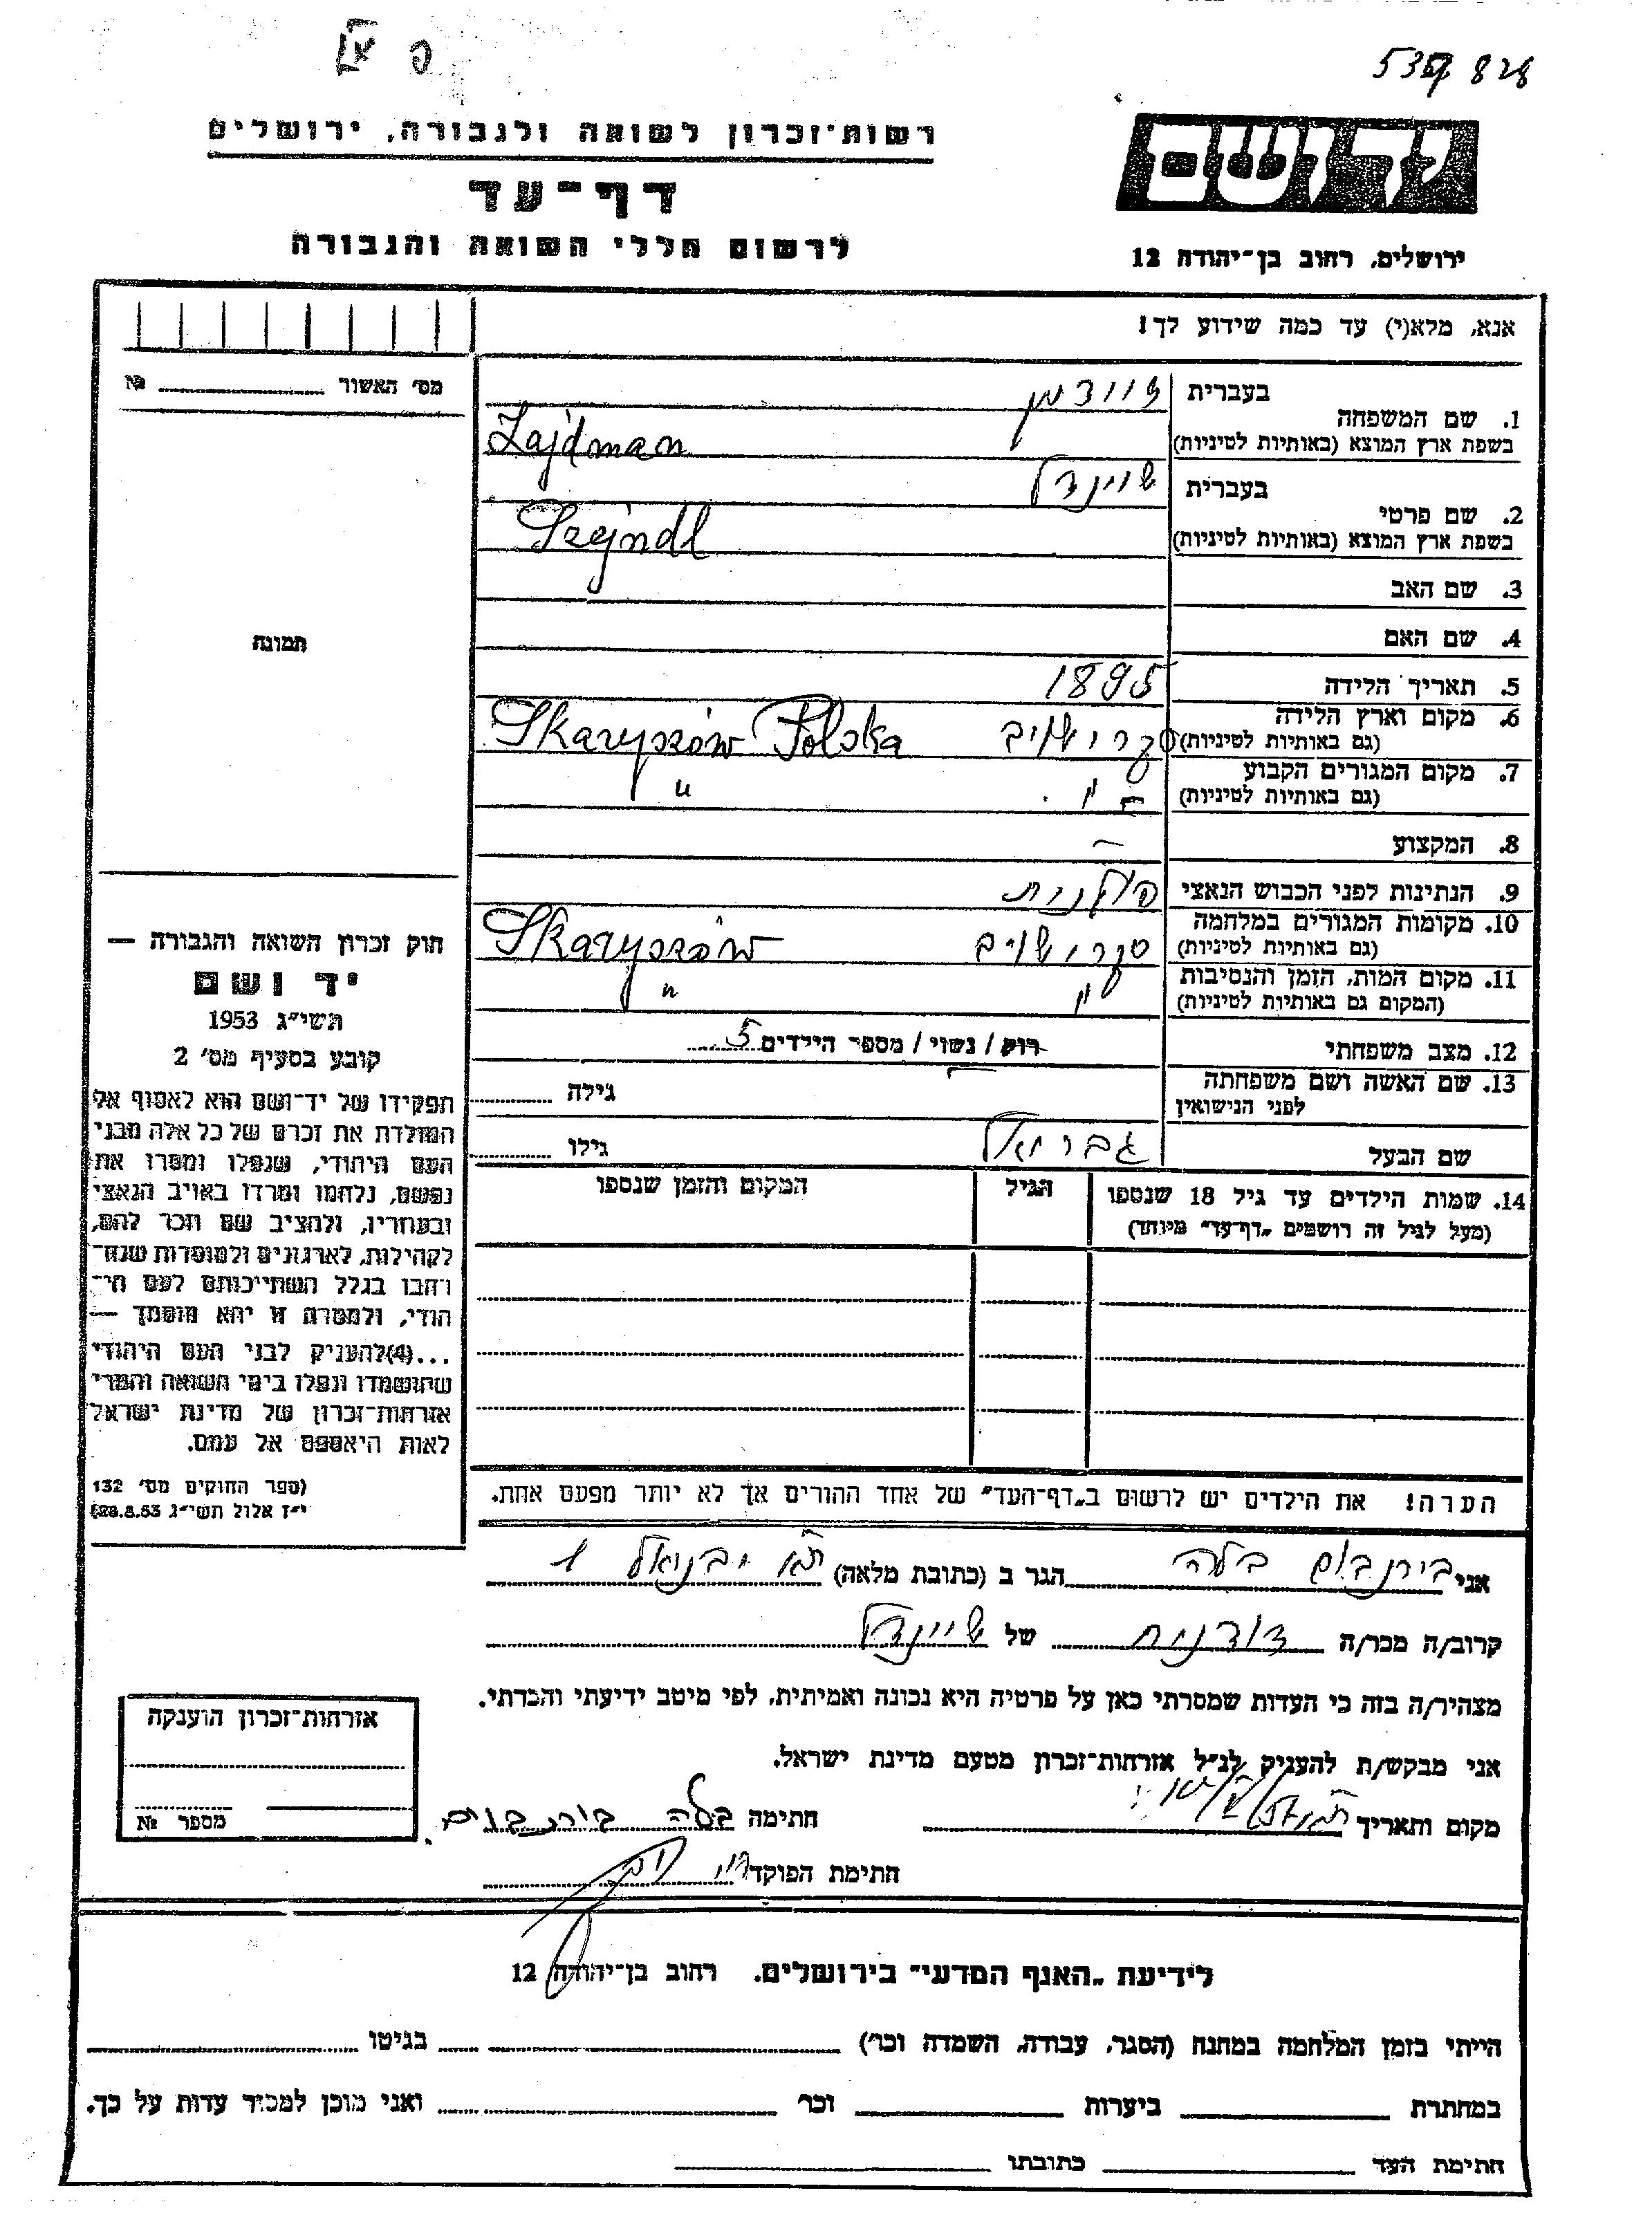 828
רשות־זכרון לשואה ולגבורה, ירושלים
דף־עד
לרשום חללי השואה והגבורה
יד ושם
ירושלים, רחוב בן־יהודה 12
אנא, מלא(י) עד כמה שידוע לך!
מס׳ האשור № 
תמונה
1. שם המשפחה
בעברית זיידמן
בשפת ארץ המוצא (באותיות לטיניות) Zajdman
2. שם פרטי
בעברית שיינדל
בשפת ארץ המוצא (באותיות לטיניות) Szejndl
3. שם האב
4. שם האם
5. תאריך הלידה 1895
6. מקום וארץ הלידה
(גם באותיות לטיניות) סקרישוב Skaryszów Polska
7. מקום המגורים הקבוע
(גם באותיות לטיניות) " "
8. המקצוע –
9. הנתינות לפני הכבוש הנאצי פולנית
10. מקומות המגורים במלחמה
(גם באותיות לטיניות) סקרישוב Skaryszów
11. מקום המות, הזמן והנסיבות
(המקום גם באותיות לטיניות) " "
12. מצב משפחתי רוק / נשוי / מספר הילדים 5
13. שם האשה ושם משפחתה
לפני הנישואין – גילה
שם הבעל גבריאל גילו
14. שמות הילדים עד גיל 18 שנספו
(מעל לגיל זה רושמים „דף־עד" מיוחד)
הגיל
המקום והזמן שנספו
הערה! את הילדים יש לרשום ב„דף־העד" של אחד ההורים אך לא יותר מפעם אחת.
חוק זכרון השואה והגבורה —
יד ושם
תשי״ג 1953
קובע בסעיף מס׳ 2
תפקידו של יד־ושם הוא לאסוף אל
המולדת את זכרם של כל אלה מבני
העם היהודי, שנפלו ומסרו את
נפשם, נלחמו ומרדו באויב הנאצי
ובעוזריו, ולהציב שם וזכר להם,
לקהילות, לארגונים ולמוסדות שנח־
רחבו בגלל השתייכותם לעם הי־
הודי, ולמטרה זו יהא מוסמך —
...(4)להעניק לבני העם היהודי
שהושמדו ונפלו בימי השואה והמרי
אזרחות־זכרון של מדינת ישראל
לאות היאספם אל עמם.
(ספר החוקים מס׳ 132
י״ז אלול תשי״ג 28.8.53)
אני בירנבוים בלה הגר ב (כתובת מלאה) ת״א יבניאל 1
קרוב/ה מכר/ה דודנית של שיינדל
מצהיר/ה בזה כי העדות שמסרתי כאן על פרטיה היא נכונה ואמיתית, לפי מיטב ידיעתי והכרתי.
אני מבקש/ת להעניק לנ״ל אזרחות־זכרון מטעם מדינת ישראל.
מקום ותאריך חתימה בלה בירנבוים
חתימת הפוקד
אזרחות־זכרון הוענקה
מספר №
לידיעת „האגף המדעי" בירושלים. רחוב בן־יהודה 12
הייתי בזמן המלחמה במחנה (הסגר, עבודה, השמדה וכר׳) בגיטו
במחתרת ביערות וכר׳ ואני מוכן למסור עדות על כך.
חתימת העד כתובתו